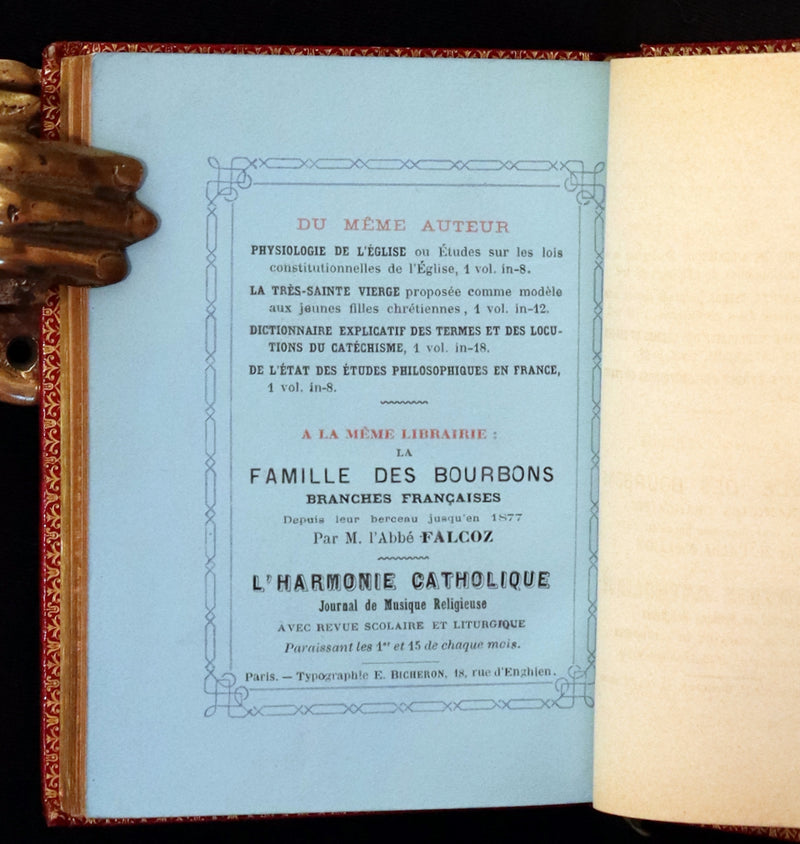 DU MÊME AUTEUR
PHYSIOLOGIE DE L'ÉGLISE ou Études sur les lois
constitutionnelles de l'Église, 1 vol. in-8.
LA TRÈS-SAINTE VIERGE proposée comme modèle
aux jeunes filles chrétiennes, 1 vol. in-12.
DICTIONNAIRE EXPLICATIF DES TERMES ET DES LOCU-
TIONS DU CATÉCHISME, 1 vol. in-18.
DE L'ÉTAT DES ÉTUDES PHILOSOPHIQUES EN FRANCE,
1 vol. in-8.
A LA MÊME LIBRAIRIE :
LA
FAMILLE DES BOURBONS
BRANCHES FRANÇAISES
Depuis leur berceau jusqu'en 1877
Par M. l'Abbé FALCOZ
L'HARMONIE CATHOLIQUE
Journal de Musique Religieuse
AVEC REVUE SCOLAIRE ET LITURGIQUE
Paraissant les 1er et 15 de chaque mois.
Paris. — Typographie E. BICHERON, 18, rue d'Enghien.